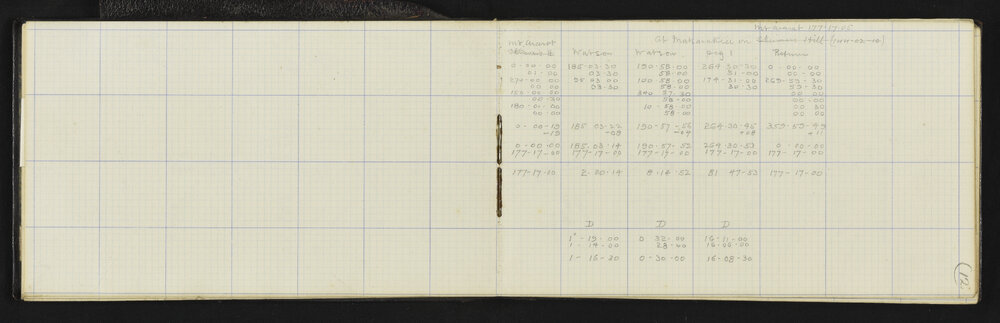 Mt Ararat 177-17-05
At Makarika on (144-02-10)
Mt Ararat
Watson Watson Reg 1 Return
0-00-00 185-03-30 190-58-00 264-30-30 0-00-00
01-00 03-30 58-00 31-00 00-00
270-00-00 95-03-00 100-58-00 174-31-00 269-59-30
00-00 03-30 58-00 30-30 59-30
57-30 00-00
00-30 58-00 00-00
180-00-00 10-58-00 00-30
00-00 58-00 00-00
0-00-19 185-03-22 190-57-56 264-30-45 359-59-49
-19 -09 -04 +08 +11
0-00-00 185-03-14 190-57-52 264-30-53 0-00-00
177-17-00 177-17-00 177-17-00 177-17-00 177-17-00
177-17-00 2-20-14 8-14-52 81-47-53 177-17-00
D D D
1°-19-00 0-32-00 16-11-00
1-14-00 28-00 16-06-00
1-16-30 0-30-00 16-08-30
12